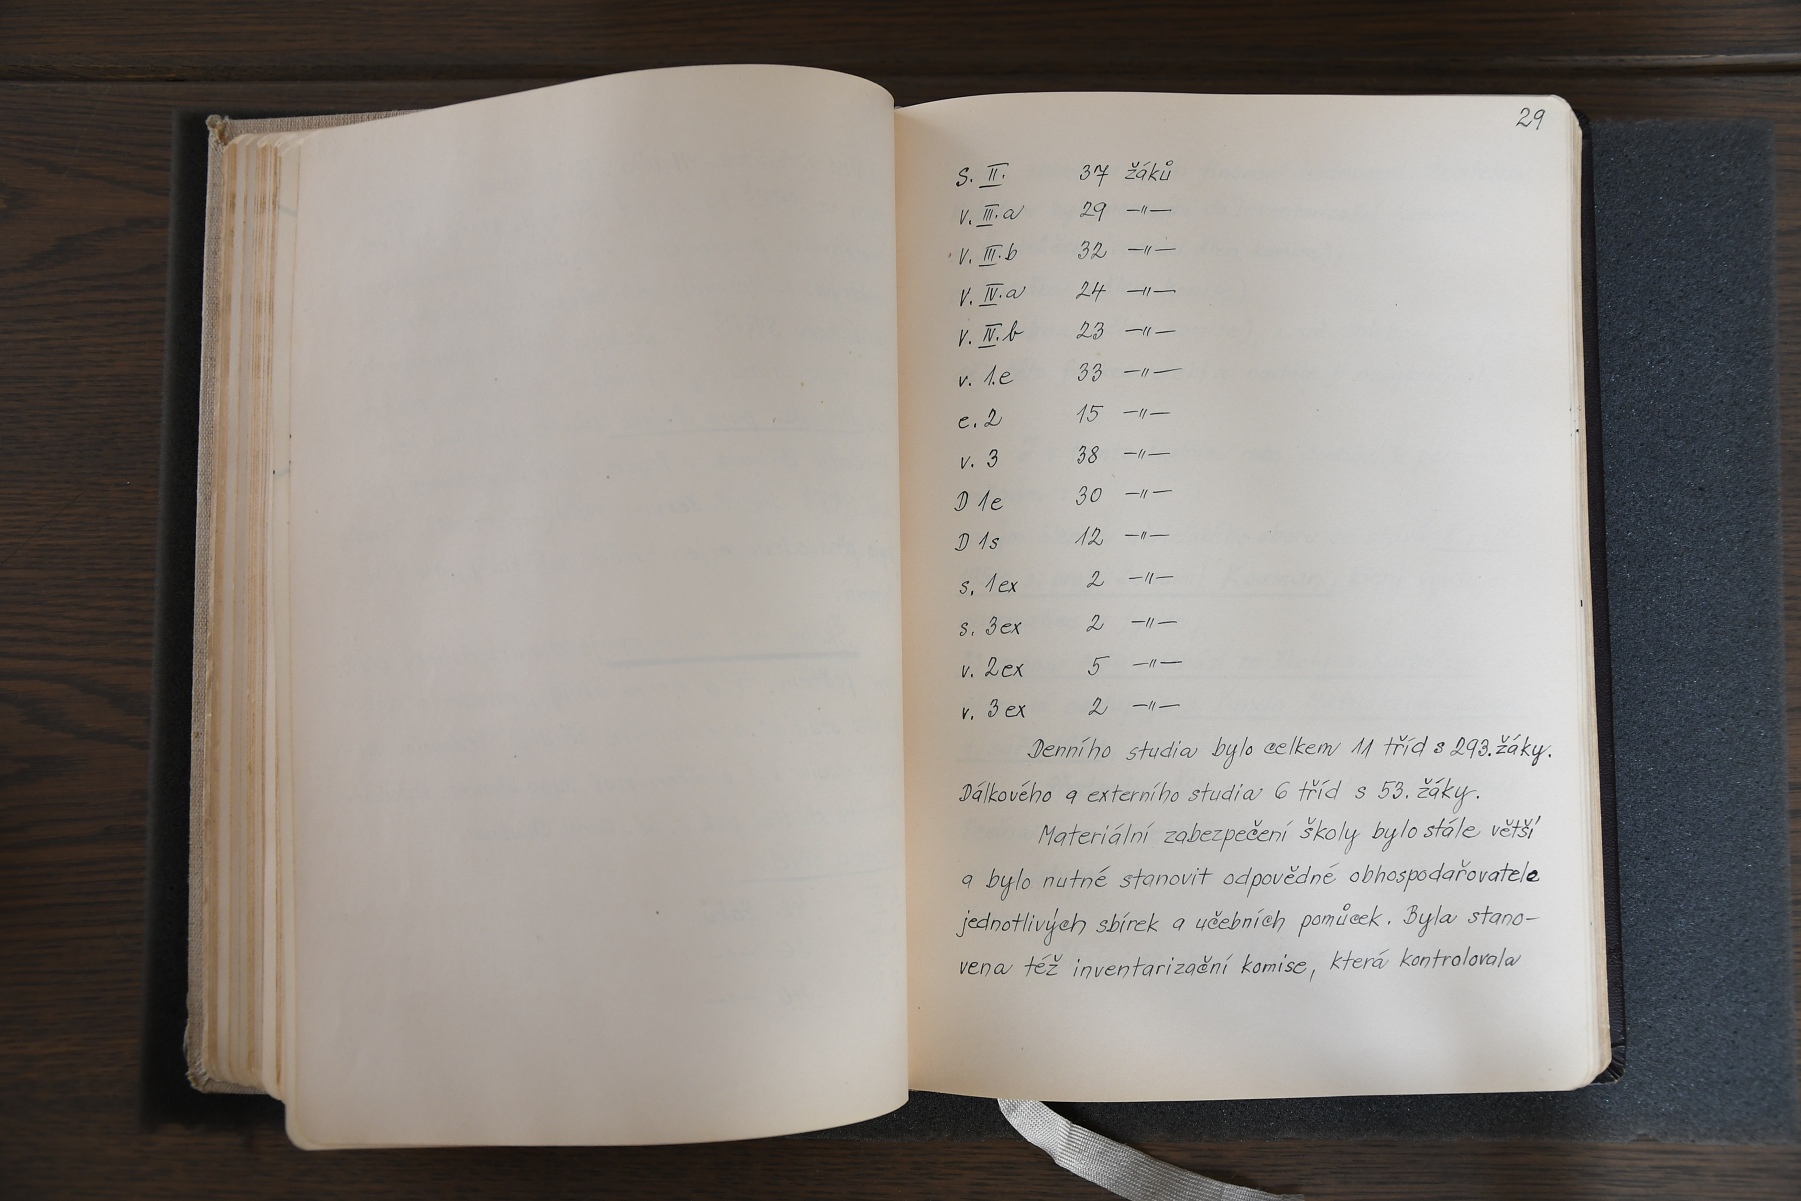 29
S. II. 37 žáků
v. III.a 29 —"—
v. III.b 32 —"—
v. IV.a 24 —"—
v. IV.b 23 —"—
v. 1.e 33 —"—
e. 2 15 —"—
v. 3 38 —"—
D 1e 30 —"—
D 1s 12 —"—
s. 1ex 2 —"—
s. 3ex 2 —"—
v. 2ex 5 —"—
v. 3ex 2 —"—
Denního studia bylo celkem 11 tříd s 293. žáky.
Dálkového a externího studia 6 tříd s 53. žáky.
Materiální zabezpečení školy bylo stále větší
a bylo nutné stanovit odpovědné obhospodařovatele
jednotlivých sbírek a učebních pomůcek. Byla stano-
vena též inventarizační komise, která kontrolovala